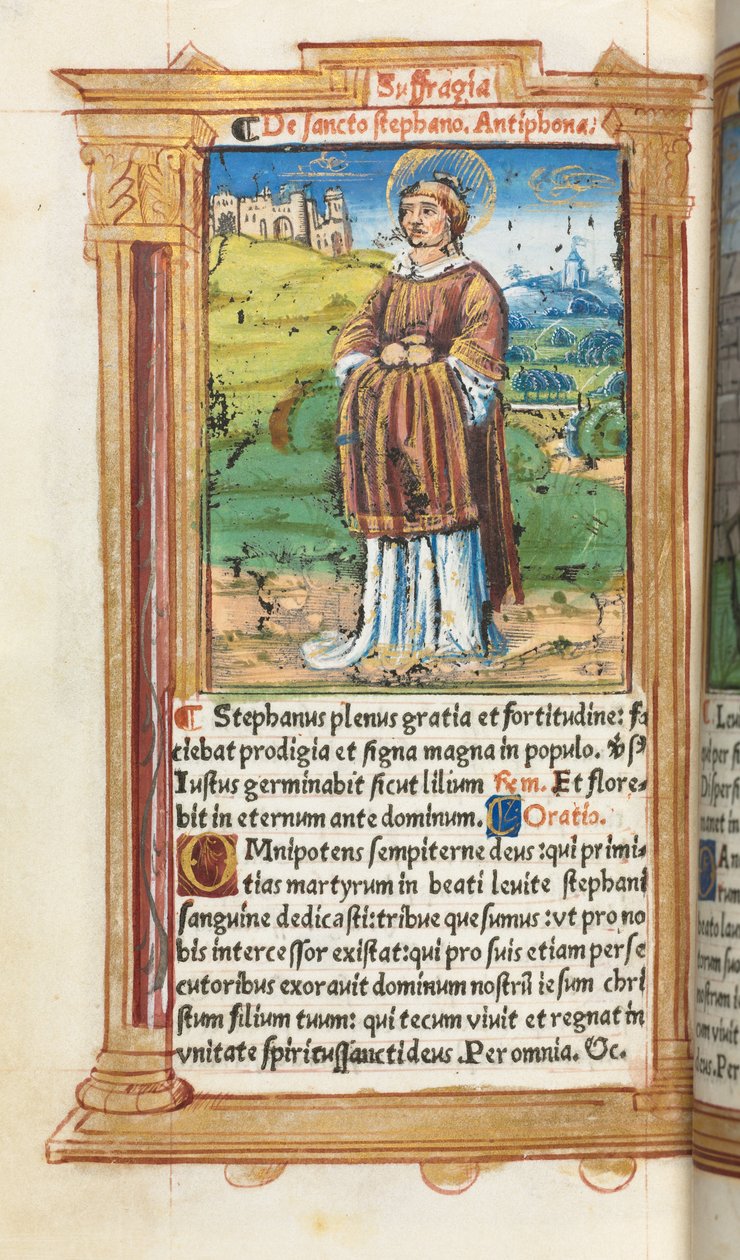 Suffragia
De sancto stephano. Antiphona:
Stephanus plenus gratia et fortitudine: fa
ciebat prodigia et signa magna in populo.
Iustus germinabit sicut lilium Rem. Et flore-
bit in eternum ante dominum. Oratio.
OMnipotens sempiterne deus :qui primi-
tias martyrum in beati leuite stephani
sanguine dedicasti:tribue quesumus :vt pro no
bis intercessor existat:qui pro suis etiam perse
cutoribus exorauit dominum nostrū iesum chri
stum filium tuum: qui tecum viuit et regnat in
vnitate spiritussancti deus .Per omnia. &c.